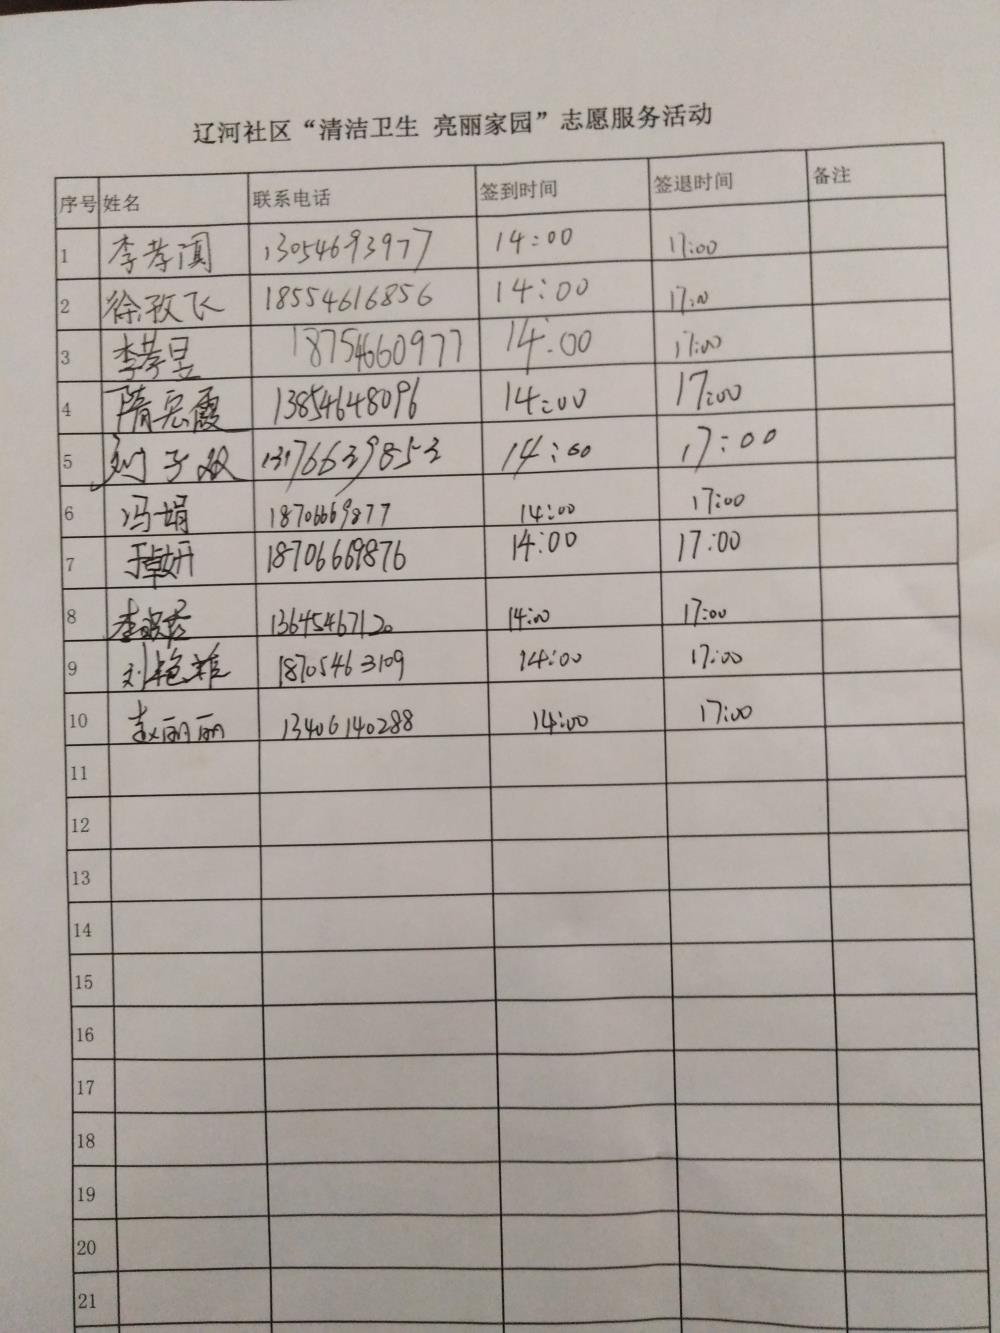 辽河社区“清洁卫生 亮丽家园”志愿服务活动
序号 姓名 联系电话 签到时间 签退时间 备注
1 李孝 13054693977 14:00 17:00
2 徐孜飞 18554616856 14:00 17:00
3 李孝昱 18754660977 14:00 17:00
4 隋霞 13854648096 14:00 17:00
5 刘子双 13176639853 14:00 17:00
6 冯娟 18706669877 14:00 17:00
7 卓妍 18706669876 14:00 17:00
8 李 13645467120 14:00 17:00
9 刘艳 18705463109 14:00 17:00
10 赵丽丽 13406140288 14:00 17:00
11
12
13
14
15
16
17
18
19
20
21